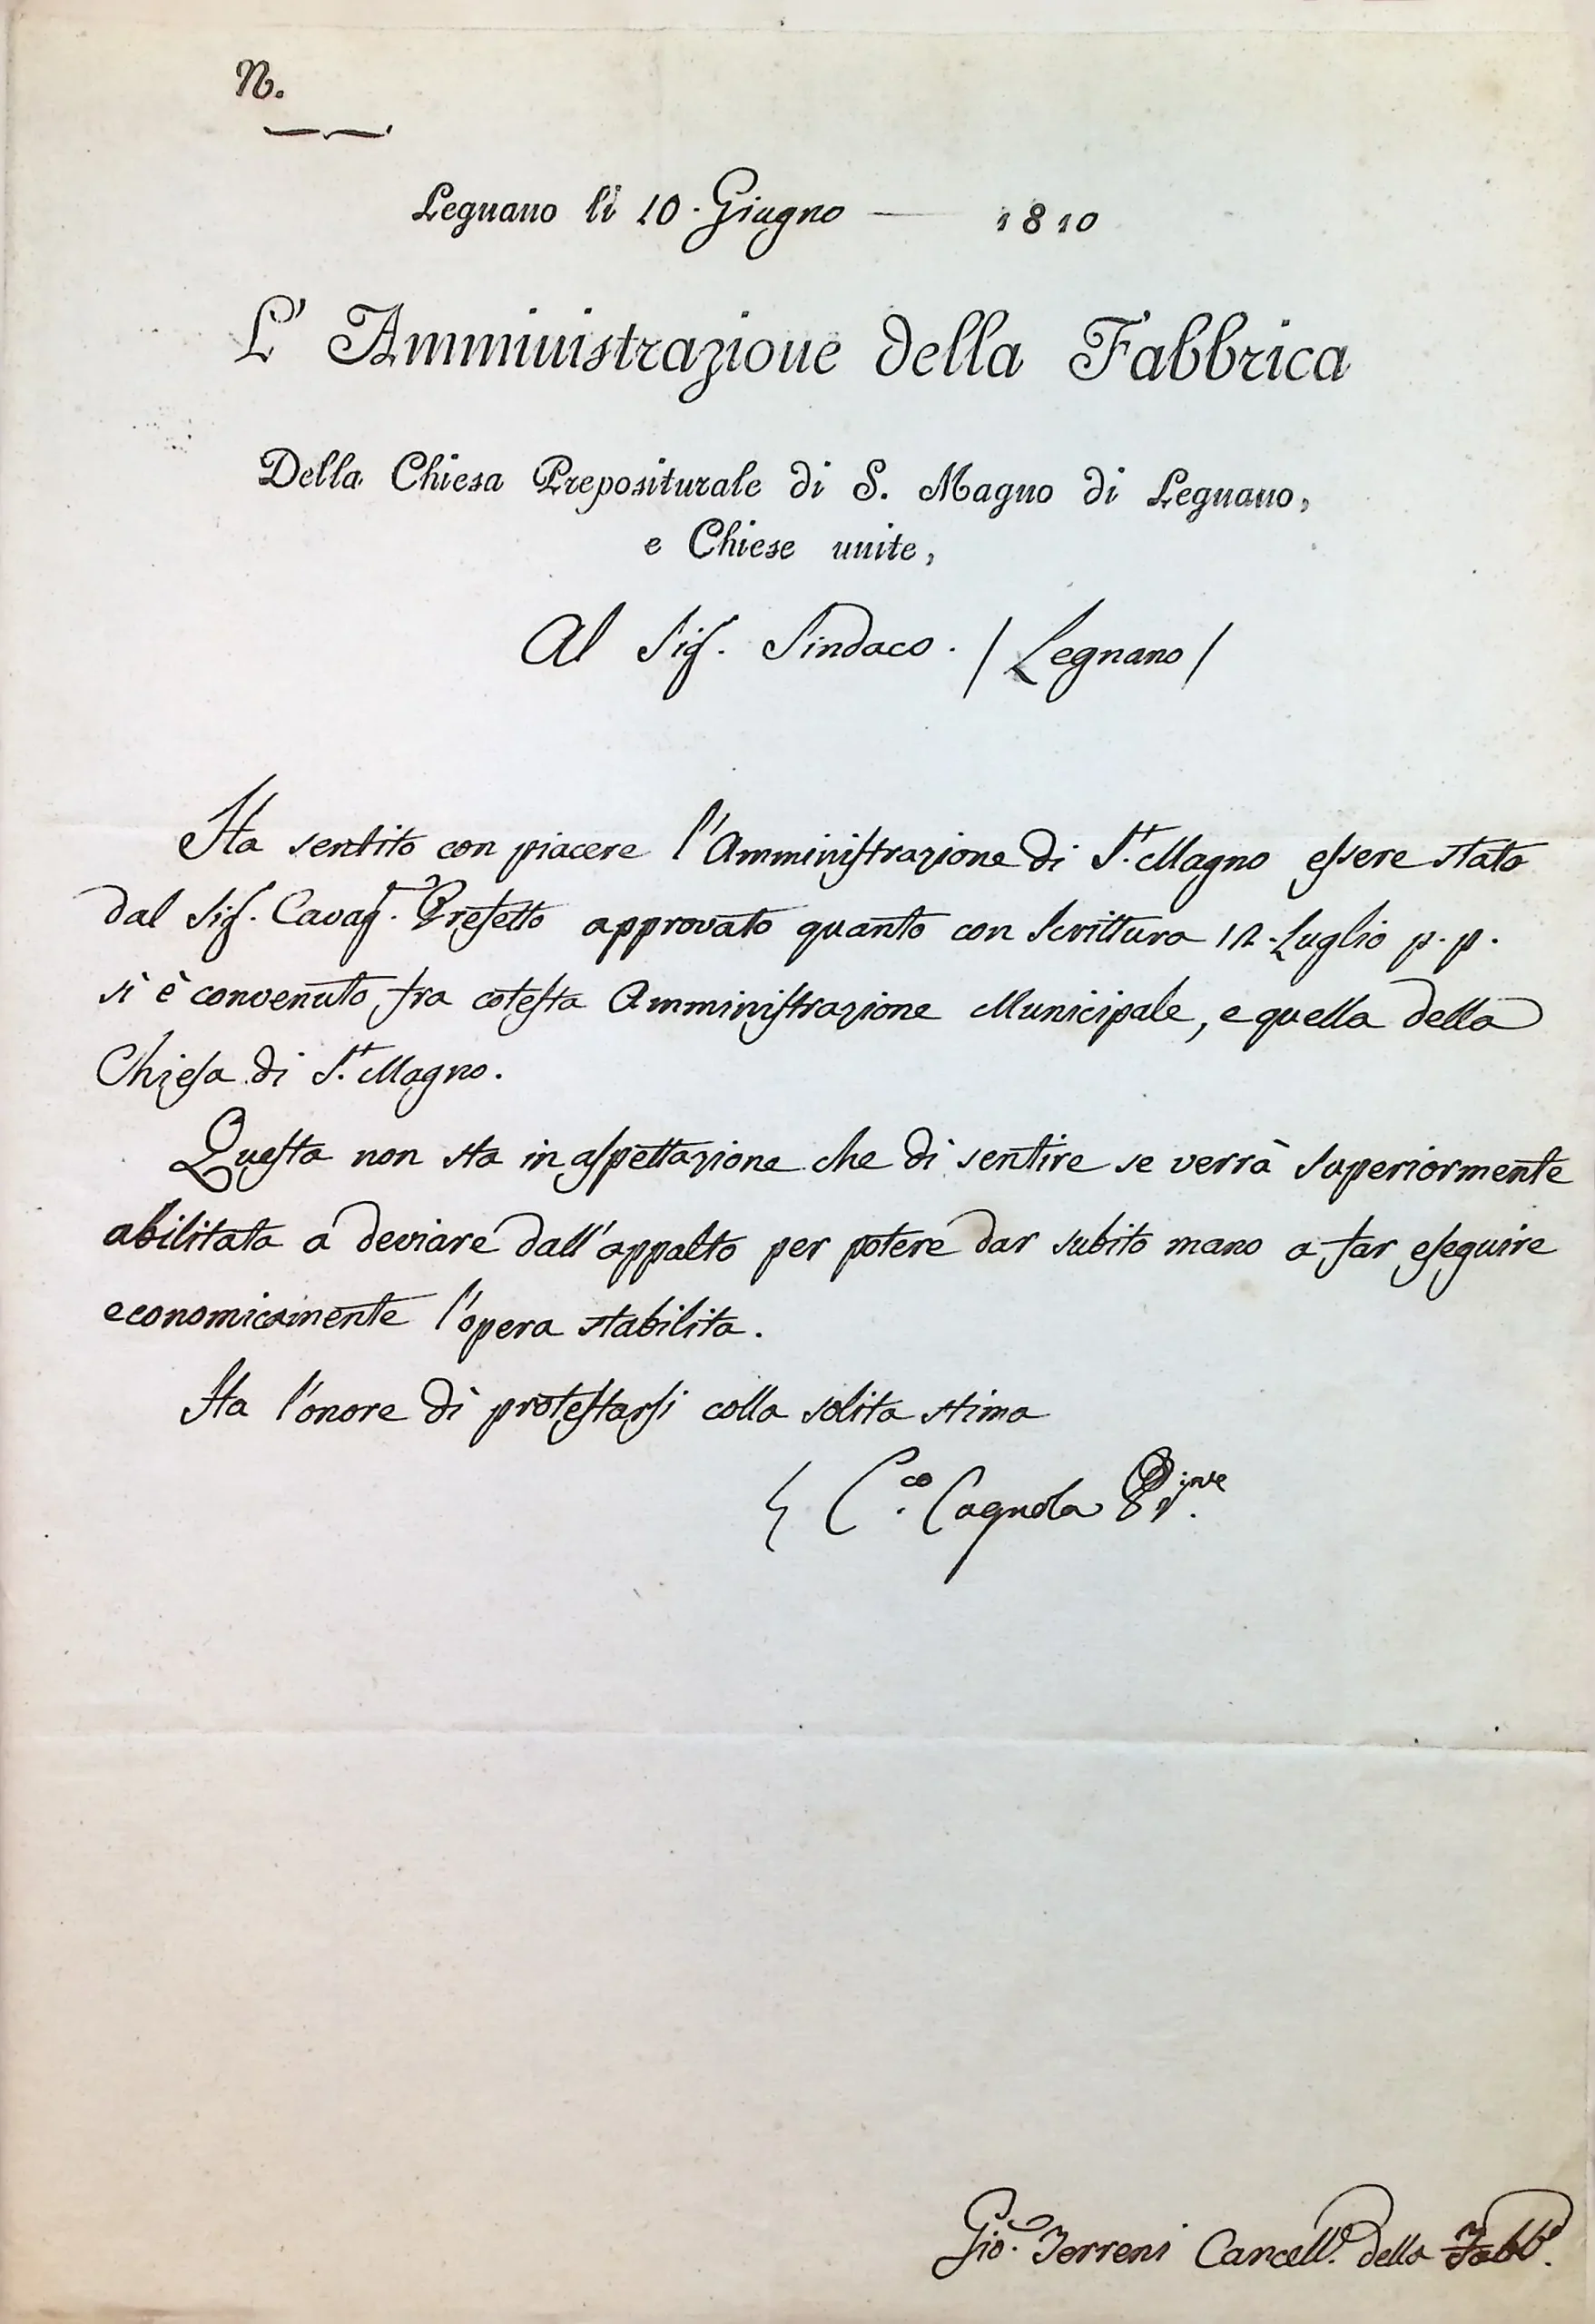 N.
Legnano li 10. Giugno — 1810
L' Amministrazione della Fabbrica
Della Chiesa Prepositurale di S. Magno di Legnano,
e Chiese unite,
Al Sig. Sindaco. / Legnano /
Ha sentito con piacere l'Amministrazione di S.t Magno essere stato
dal Sig. Cavag.r Prefetto approvato quanto con Scrittura 12. Luglio p. p.
si è convenuto fra cotesta Amministrazione Municipale, e quella della
Chiesa di S.t Magno.
Questa non sta in aspettazione che di sentire se verrà superiormente
abilitata a deviare dall'appalto per potere dar subito mano a far eseguire
economicamente l'opera stabilita.
Ha l'onore di protestarsi colla solita stima
C.co Cagnola
Gio. Terreni Cancell.e della Fabb.a